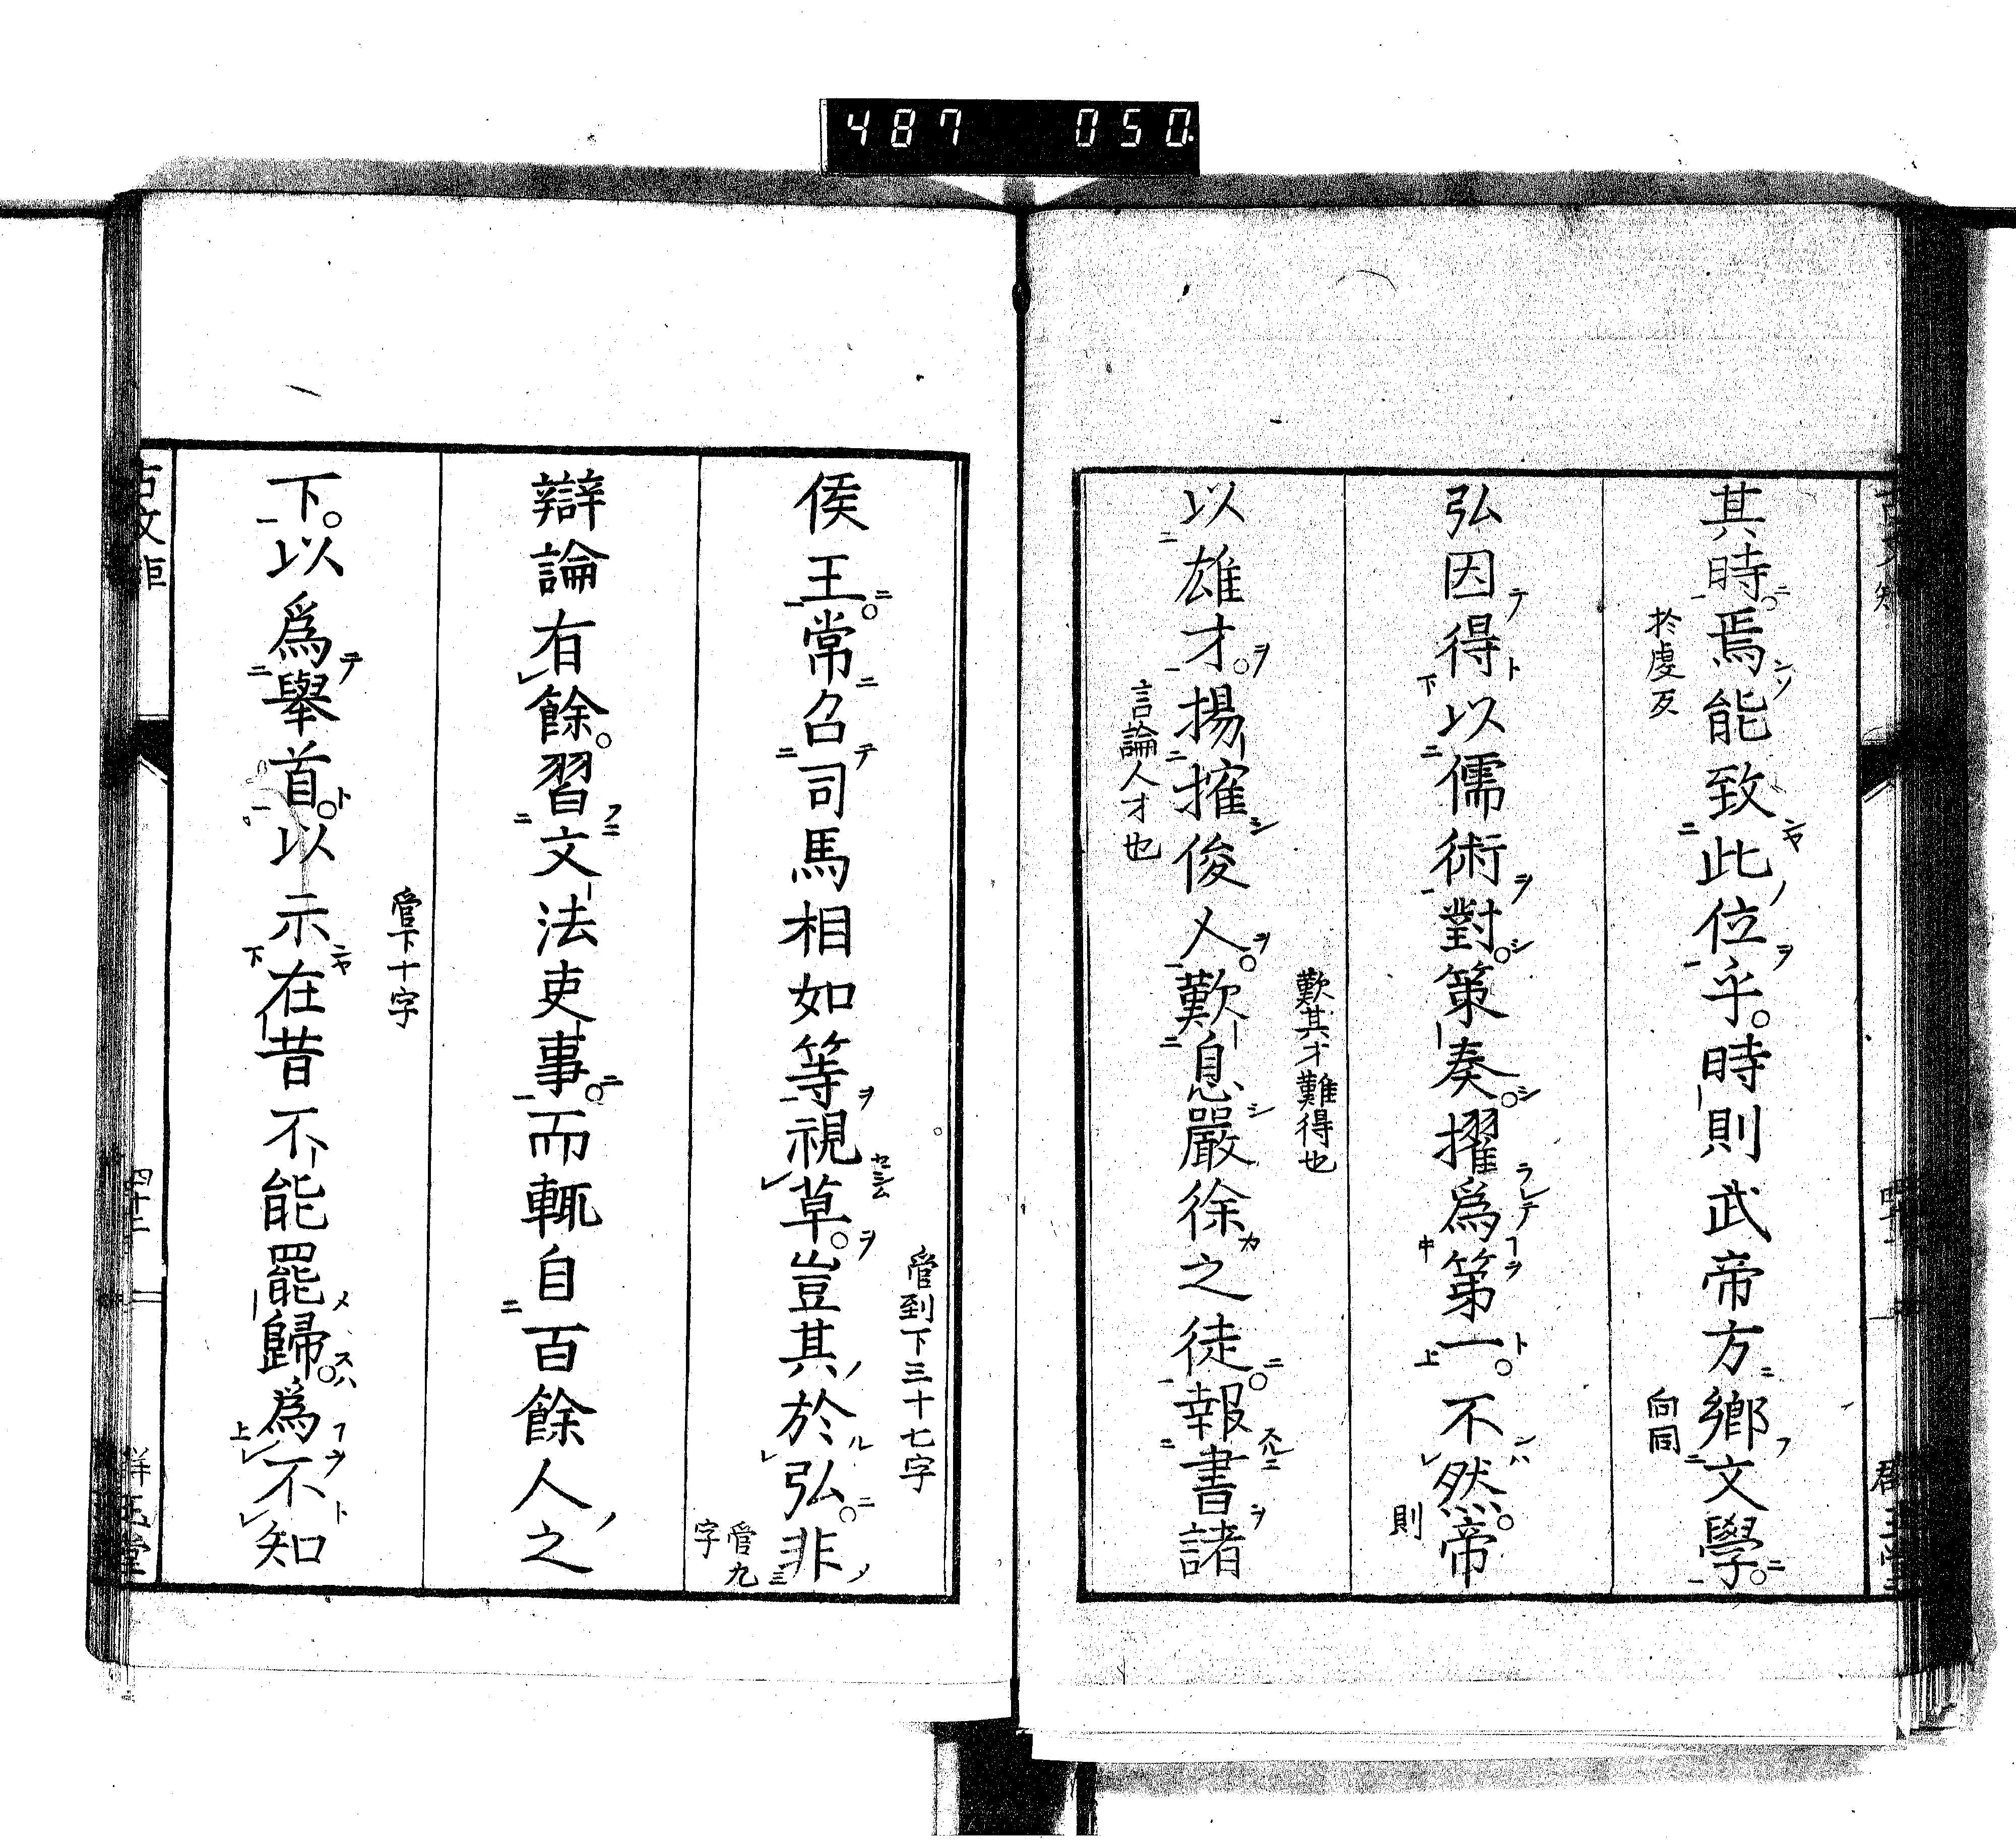 487 050
其時焉能致此位乎時則武帝方鄉文學
於虔反
向同
弘因得以儒術對策奏擢爲第一不然帝
則
歎其才難得也
以雄才揚搉俊人歎息嚴徐之徒報書諸
言論人才也
管到下三十七字
侯王常召司馬相如等視草豈其於弘非
管九字
辯論有餘習文法吏事而輒自百餘人之
管下十字
下以爲舉首以示在昔不能罷歸爲不知
古文矩
四十二
群玉堂